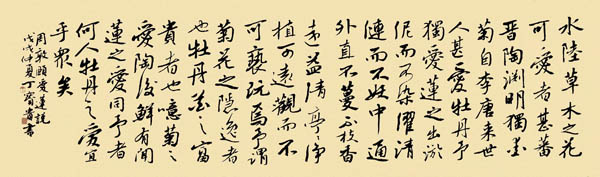 水陸草木之花
可愛者甚蕃
晉陶渊明獨愛
菊自李唐来世
人甚愛牡丹予
獨愛蓮之出淤
泥而不染濯清
漣而不妖中通
外直不蔓不枝香
遠益清亭亭净
植可遠觀而不
可褻玩焉予謂
菊花之隐逸者
也牡丹花之富
貴者也噫菊之
愛陶後鮮有聞
蓮之愛同予者
何人牡丹之愛宜
乎眾矣
周敦頤愛蓮説
戊戌仲夏丁貴書